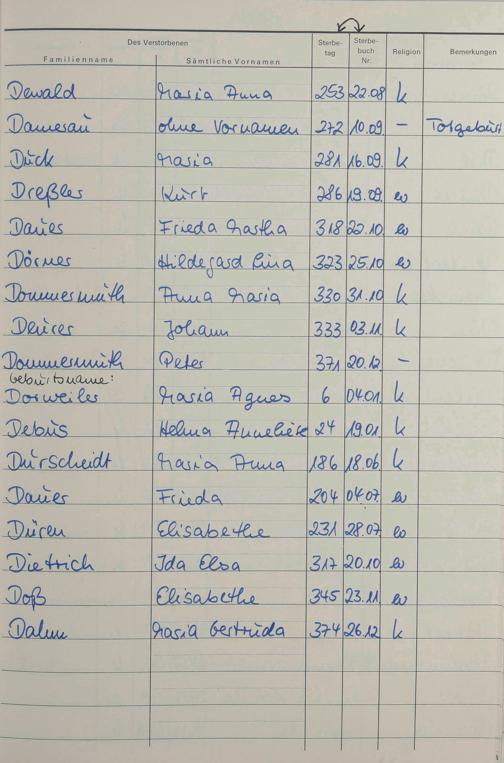 Des Verstorbenen
Familienname Sämtliche Vornamen Sterbe-tag Sterbe-buch Nr. Religion Bemerkungen
Dewald Maria Anna 253 22.08 k
Damerau ohne Vornamen 272 10.09. - Totgeburt
Dück Maria 281 16.09. k
Dreßler Kurt 286 19.09. ev
Dauer Frieda Martha 318 22.10 ev
Dörner Hildegard Lina 323 25.10 ev
Dommermuth Anna Maria 330 31.10 k
Deurer Johann 333 03.11. k
Dommermuth Peter 371 20.12. -
Geburtsname:
Dorweiler Maria Agnes 6 04.01. k
Debus Helma Anneliese 24 19.01. k
Dürscheidt Maria Anna 186 18.06 k
Dauer Frieda 204 04.07 ev
Düren Elisabethe 231 28.07. ev
Dietrich Ida Elsa 317 20.10 ev
Doß Elisabethe 345 23.11. ev
Dahm Maria Gertruda 374 26.12 k